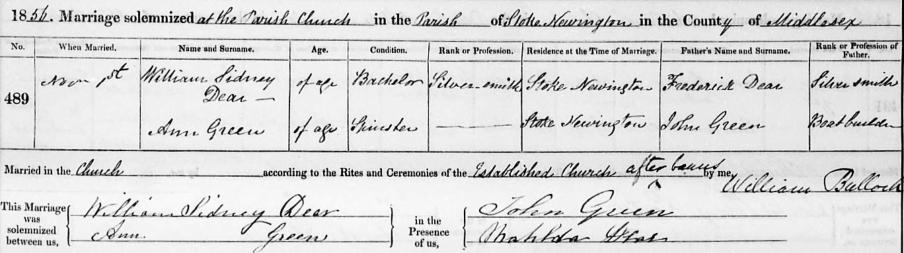 1856. Marriage solemnized at the Parish Church in the Parish of Stoke Newington in the County of Middlesex
No. When Married. Name and Surname. Age. Condition. Rank or Profession. Residence at the Time of Marriage. Father's Name and Surname. Rank or Profession of Father.
489 Novr 1st William Sidney Dear of age Bachelor Silver smith Stoke Newington Frederick Dear Silver smith
Ann Green of age Spinster Stoke Newington John Green Boatbuilder
Married in the Church according to the Rites and Ceremonies of the Established Church after banns by me, William Bullock
This Marriage was solemnized between us, William Sidney Dear in the Presence of us, John Green
Ann Green Matilda Dear